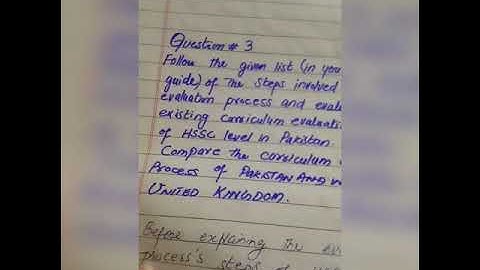 Question # 3
Follow the given list (in you
guide) of The Steps involved
evaluation process and evalu
existing curriculum evaluati
of HSSC level in Pakistan.
Compare the curriculum
Process of PAKISTAN AND
UNITED KINGDOM.
Before explaining The
process's steps of